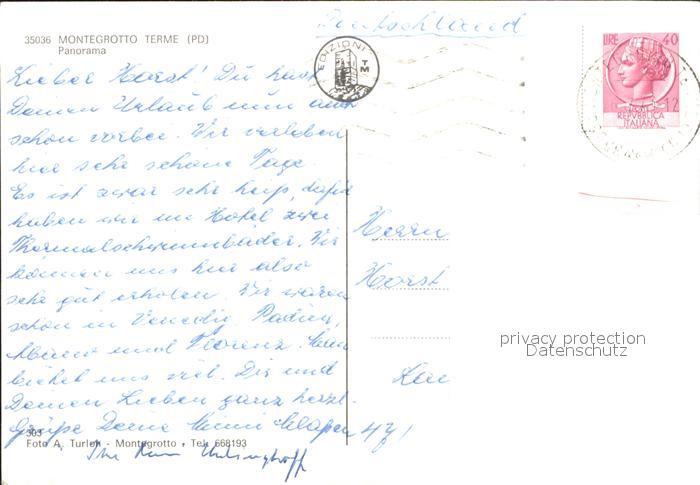 Deutschland
35036 MONTEGROTTO TERME (PD)
Panorama
EDIZIONI
TM
LIRE 40
REPVBBLICA
ITALIANA
12
Lieber Horst! Du hast
Deinen Urlaub nun auch
schon vorbei. Wir verleben
hier sehr schöne Tage.
Es ist zwar sehr heiß, dafür
haben wir im Hotel zwei
Thermalschwimmbäder. Wir
können uns hier also
sehr gut erholen. Wir waren
schon in Venedig, Padua,
Abano und Florenz. Man
bietet uns viel. Dir und
Deinen Lieben ganz herzl.
Grüße Deine
Herrn
Horst
privacy protection
Datenschutz
303
Foto A. Turlon - Montegrotto - Tel. 668193